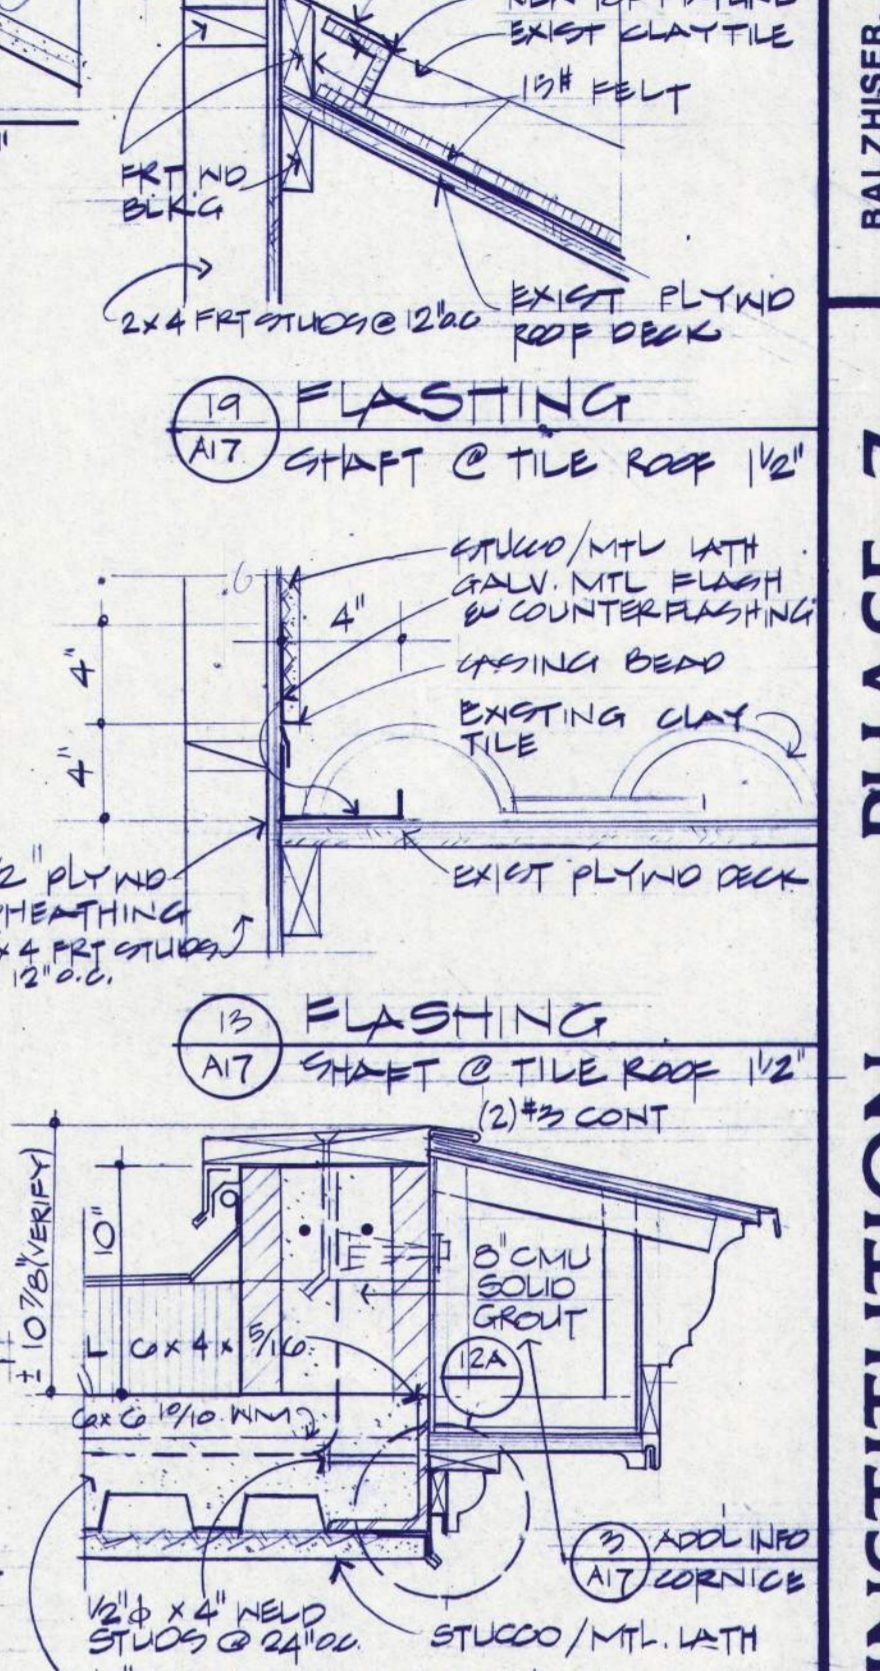 EXIST CLAY TILE
15# FELT
FRT WD
BLKG
2x4 FRT STUDS @ 12" O.C
EXIST PLYWD
ROOF DECK
19
A17
FLASHING
SHAFT @ TILE ROOF 1 1/2"
STUCCO/MTL LATH
GALV. MTL FLASH
& COUNTERFLASHING
4"
CASING BEAD
4"
EXISTING CLAY
TILE
4"
2" PLYWD
HEATHING
x 4 FRT STUDS
12" O.C.
EXIST PLYWD DECK
13
A17
FLASHING
SHAFT @ TILE ROOF 1 1/2"
(2) #3 CONT
± 10 7/8" (VERIFY)
10"
8" CMU
SOLID
GROUT
L 6 x 4 x 5/16
12A
6x6 10/10 WM
3
A17
ADDL INFO
CORNICE
1/2" ϕ x 4" WELD
STUDS @ 24" O.C.
STUCCO/MTL. LATH
BALZHISER
PHASE